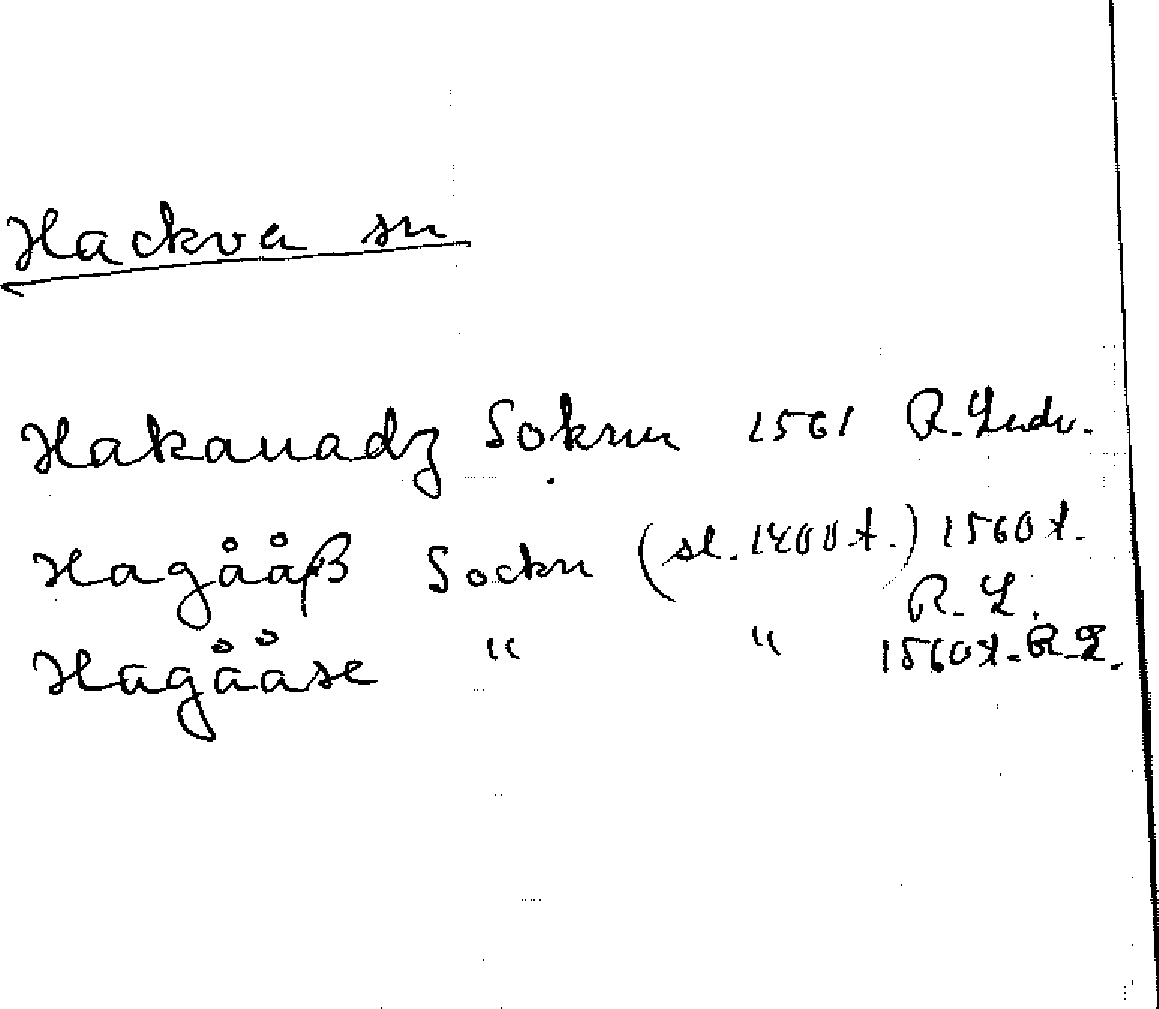 Hackva sn
Hakanadz Soknn 1561 R.
Hagååß Sockn (sl. 1400 t.) 1560 t.
R. L.
Hagååse " " 1560 t. R. L.